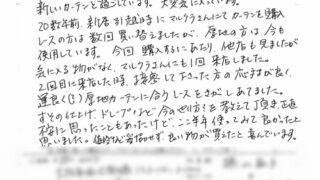 新しいカーテンと過ごしています。大変気に入っています。
20数年前、新居引越時に マルクラさんにてカーテンを購入
レースの方は数回買い替えましたが、厚地の方は、今も
使用しています。今回購入するにあたり、他店も見ましたが
気に入る物がなく、マルクラさんにも1回来店しました。
2回目に来店した時、接客して下さった方の応対が良く、
運良く(!)厚地カーテンに合うレースをさがしあてました。
すその仕上げ、ドレープなど 今のやり方を教えて頂き正直
様に思ったこともあったけど、ここ年々使ってみて良かったと
思いました。値段など苦労せず、良い物が買えたと喜んでいます。